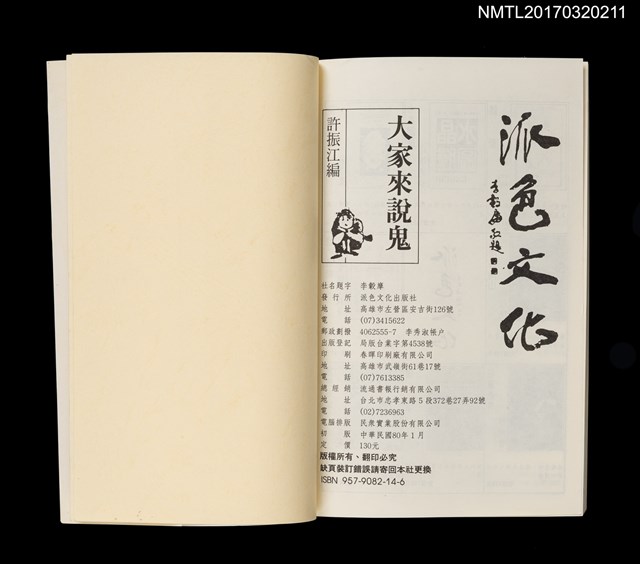 NMTL20170320211
派色文化
李㲄摩敬題
大家來說鬼
許振江編
社名題字 李㲄摩
發行所 派色文化出版社
地址 高雄市左營區安吉街126號
電話 (07)3415622
郵政劃撥 4062555-7 李秀淑帳戶
出版登記 局版台業字第4538號
印刷 春暉印刷廠有限公司
地址 高雄市武嶺街61巷17號
電話 (07)7613385
總經銷 流通書報行銷有限公司
地址 台北市忠孝東路5段372巷27弄92號
電話 (02)7236963
電腦排版 民衆實業股份有限公司
初版 中華民國80年1月
定價 130元
版權所有、翻印必究
缺頁裝訂錯誤請寄回本社更換
ISBN 957-9082-14-6